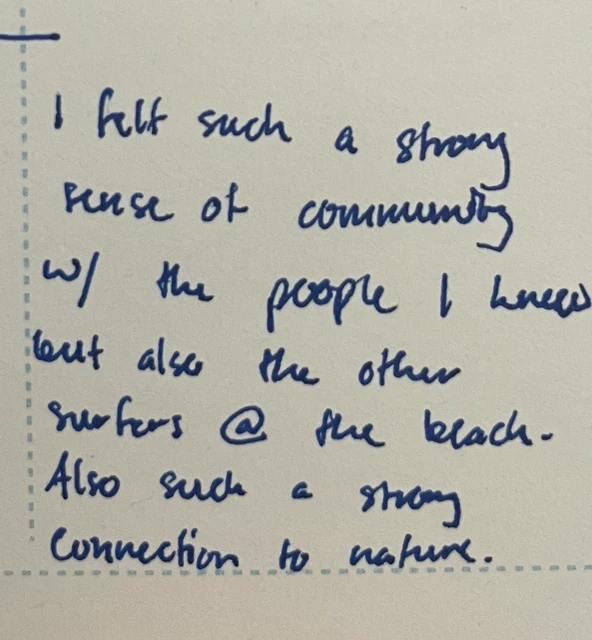 I felt such a strong
sense of community
w/ the people I knew
but also the other
surfers @ the beach.
Also such a strong
connection to nature.